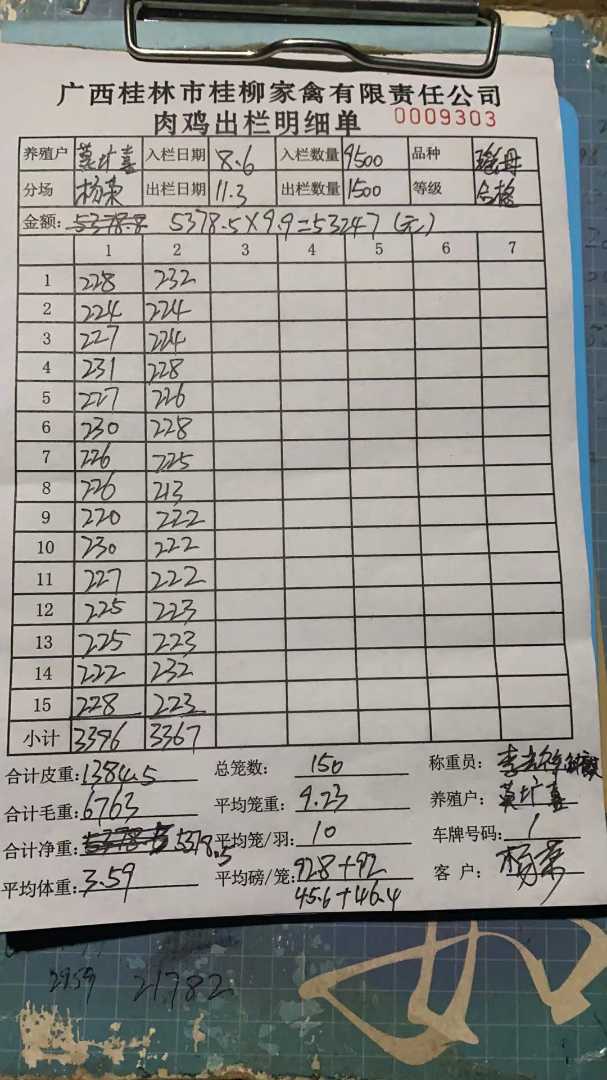 广西桂林市桂柳家禽有限责任公司
肉鸡出栏明细单 0009303
养殖户 入栏日期 8.6 入栏数量 9500 品种
分场 杨荣 出栏日期 11.3 出栏数量 1500 等级 合格
金额: 5378.8 5378.5×9.9=53247(元)
1 2 3 4 5 6 7
1 228 232
2 224 224
3 227 224
4 231 228
5 227 226
6 230 228
7 226 225
8 226 213
9 220 222
10 230 222
11 227 222
12 225 223
13 225 223
14 222 232
15 228 223
小计 3396 3367
合计皮重: 1384.5 总笼数: 150 称重员:
合计毛重: 6763 平均笼重: 9.23 养殖户:
合计净重: 5378.5 平均笼/羽: 10 车牌号码: 1
平均体重: 3.59 平均磅/笼: 928+92 客户: 杨荣
45.6+46.4
2959 21782